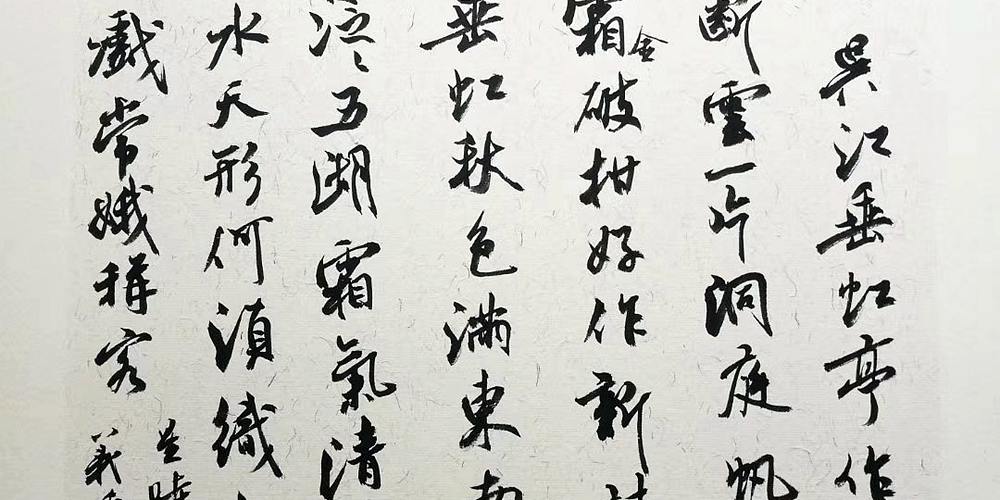 吳江垂虹亭作
斷雲一片洞庭帆
霜金破柑好作新
垂虹秋色滿東南
泛〻五湖霜氣清
水天形何湏織
戲常娥稱客